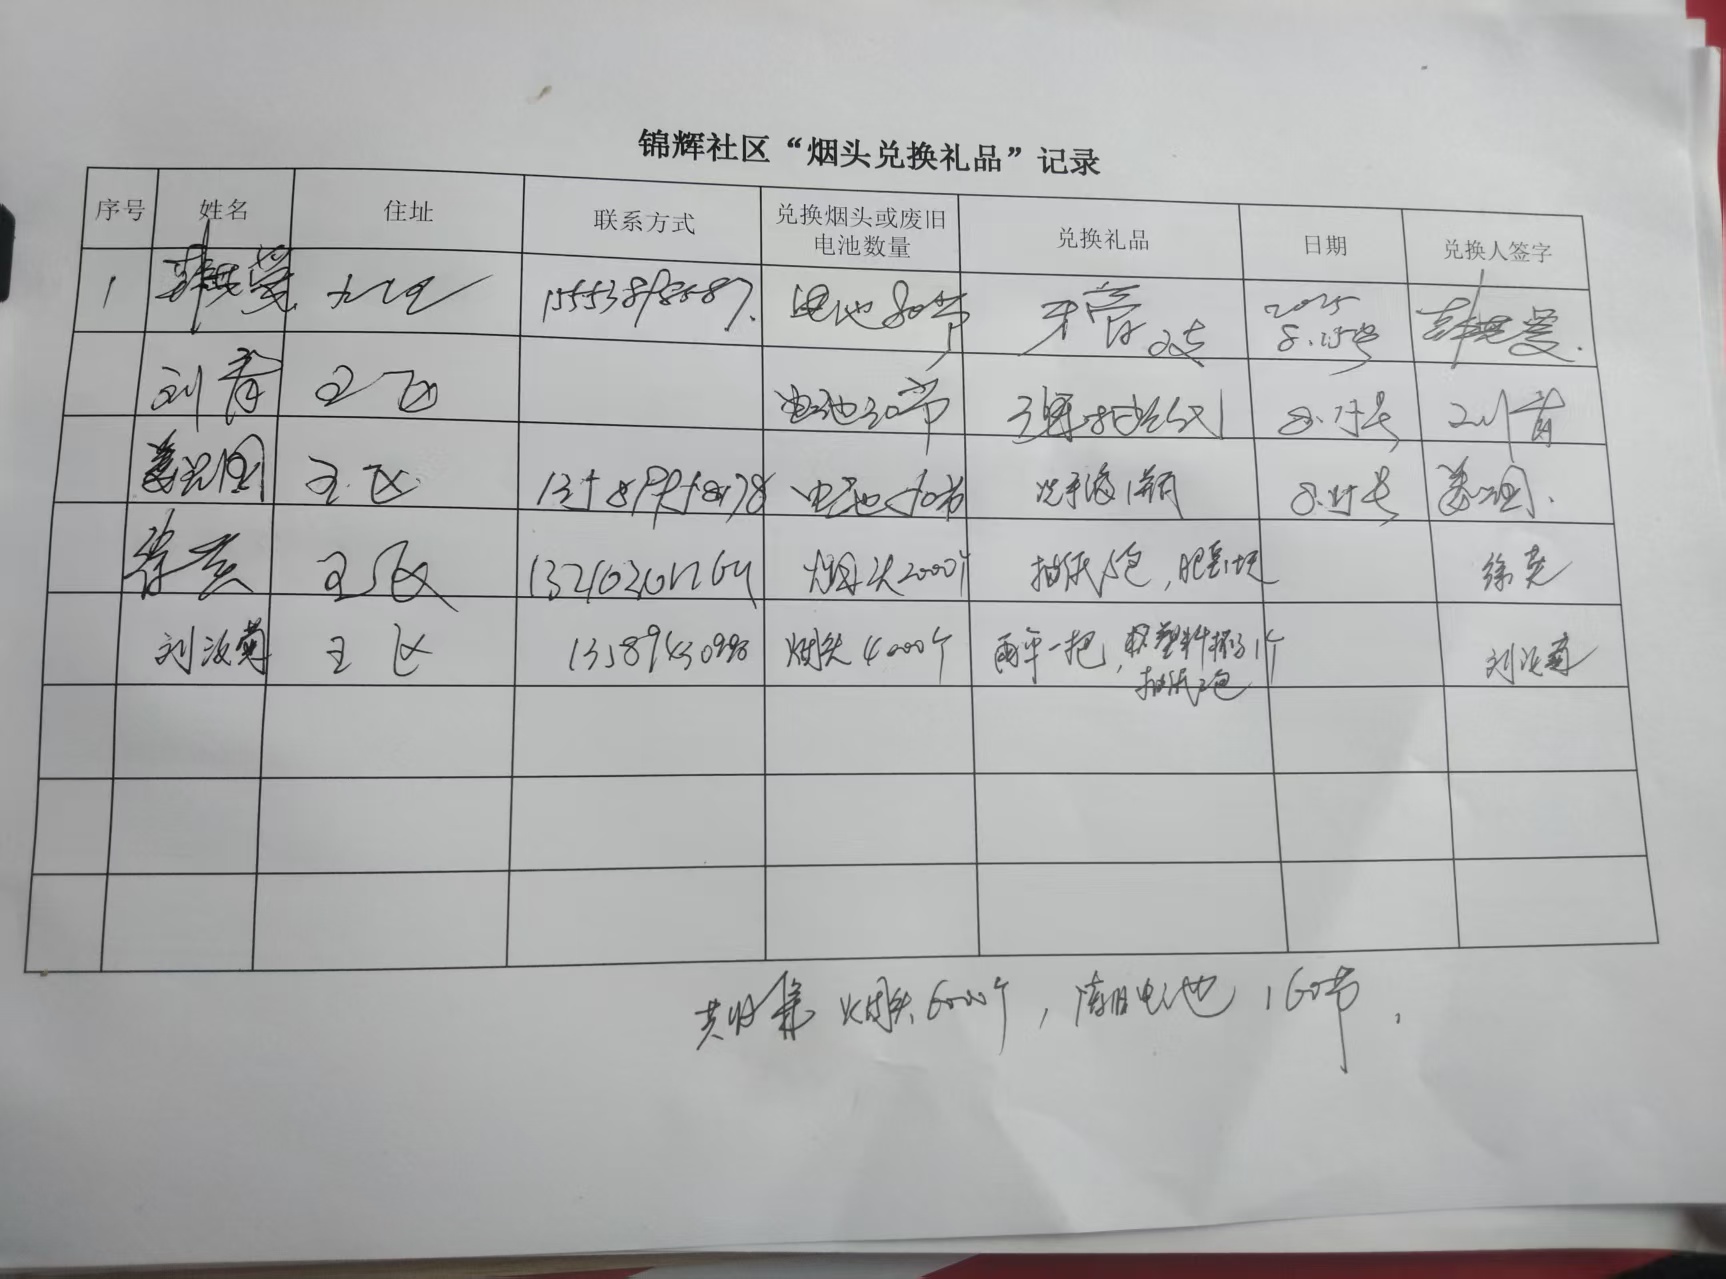 锦辉社区“烟头兑换礼品”记录
序号 姓名 住址 联系方式 兑换烟头或废旧电池数量 兑换礼品 日期 兑换人签字
1 电池80节 牙膏2支 2025 8.15号
刘青 王区 电池30节 8.15号 刘青
姜 王区 电池50节 洗手液1瓶 8.15号 姜
徐英 王区 烟头2000个 抽纸5包,肥皂1块 徐英
刘汝菊 王区 烟头4000个 雨伞一把, 塑料杯子1个 刘汝菊
抽纸2包
共收集 烟头6000个,废旧电池160节.